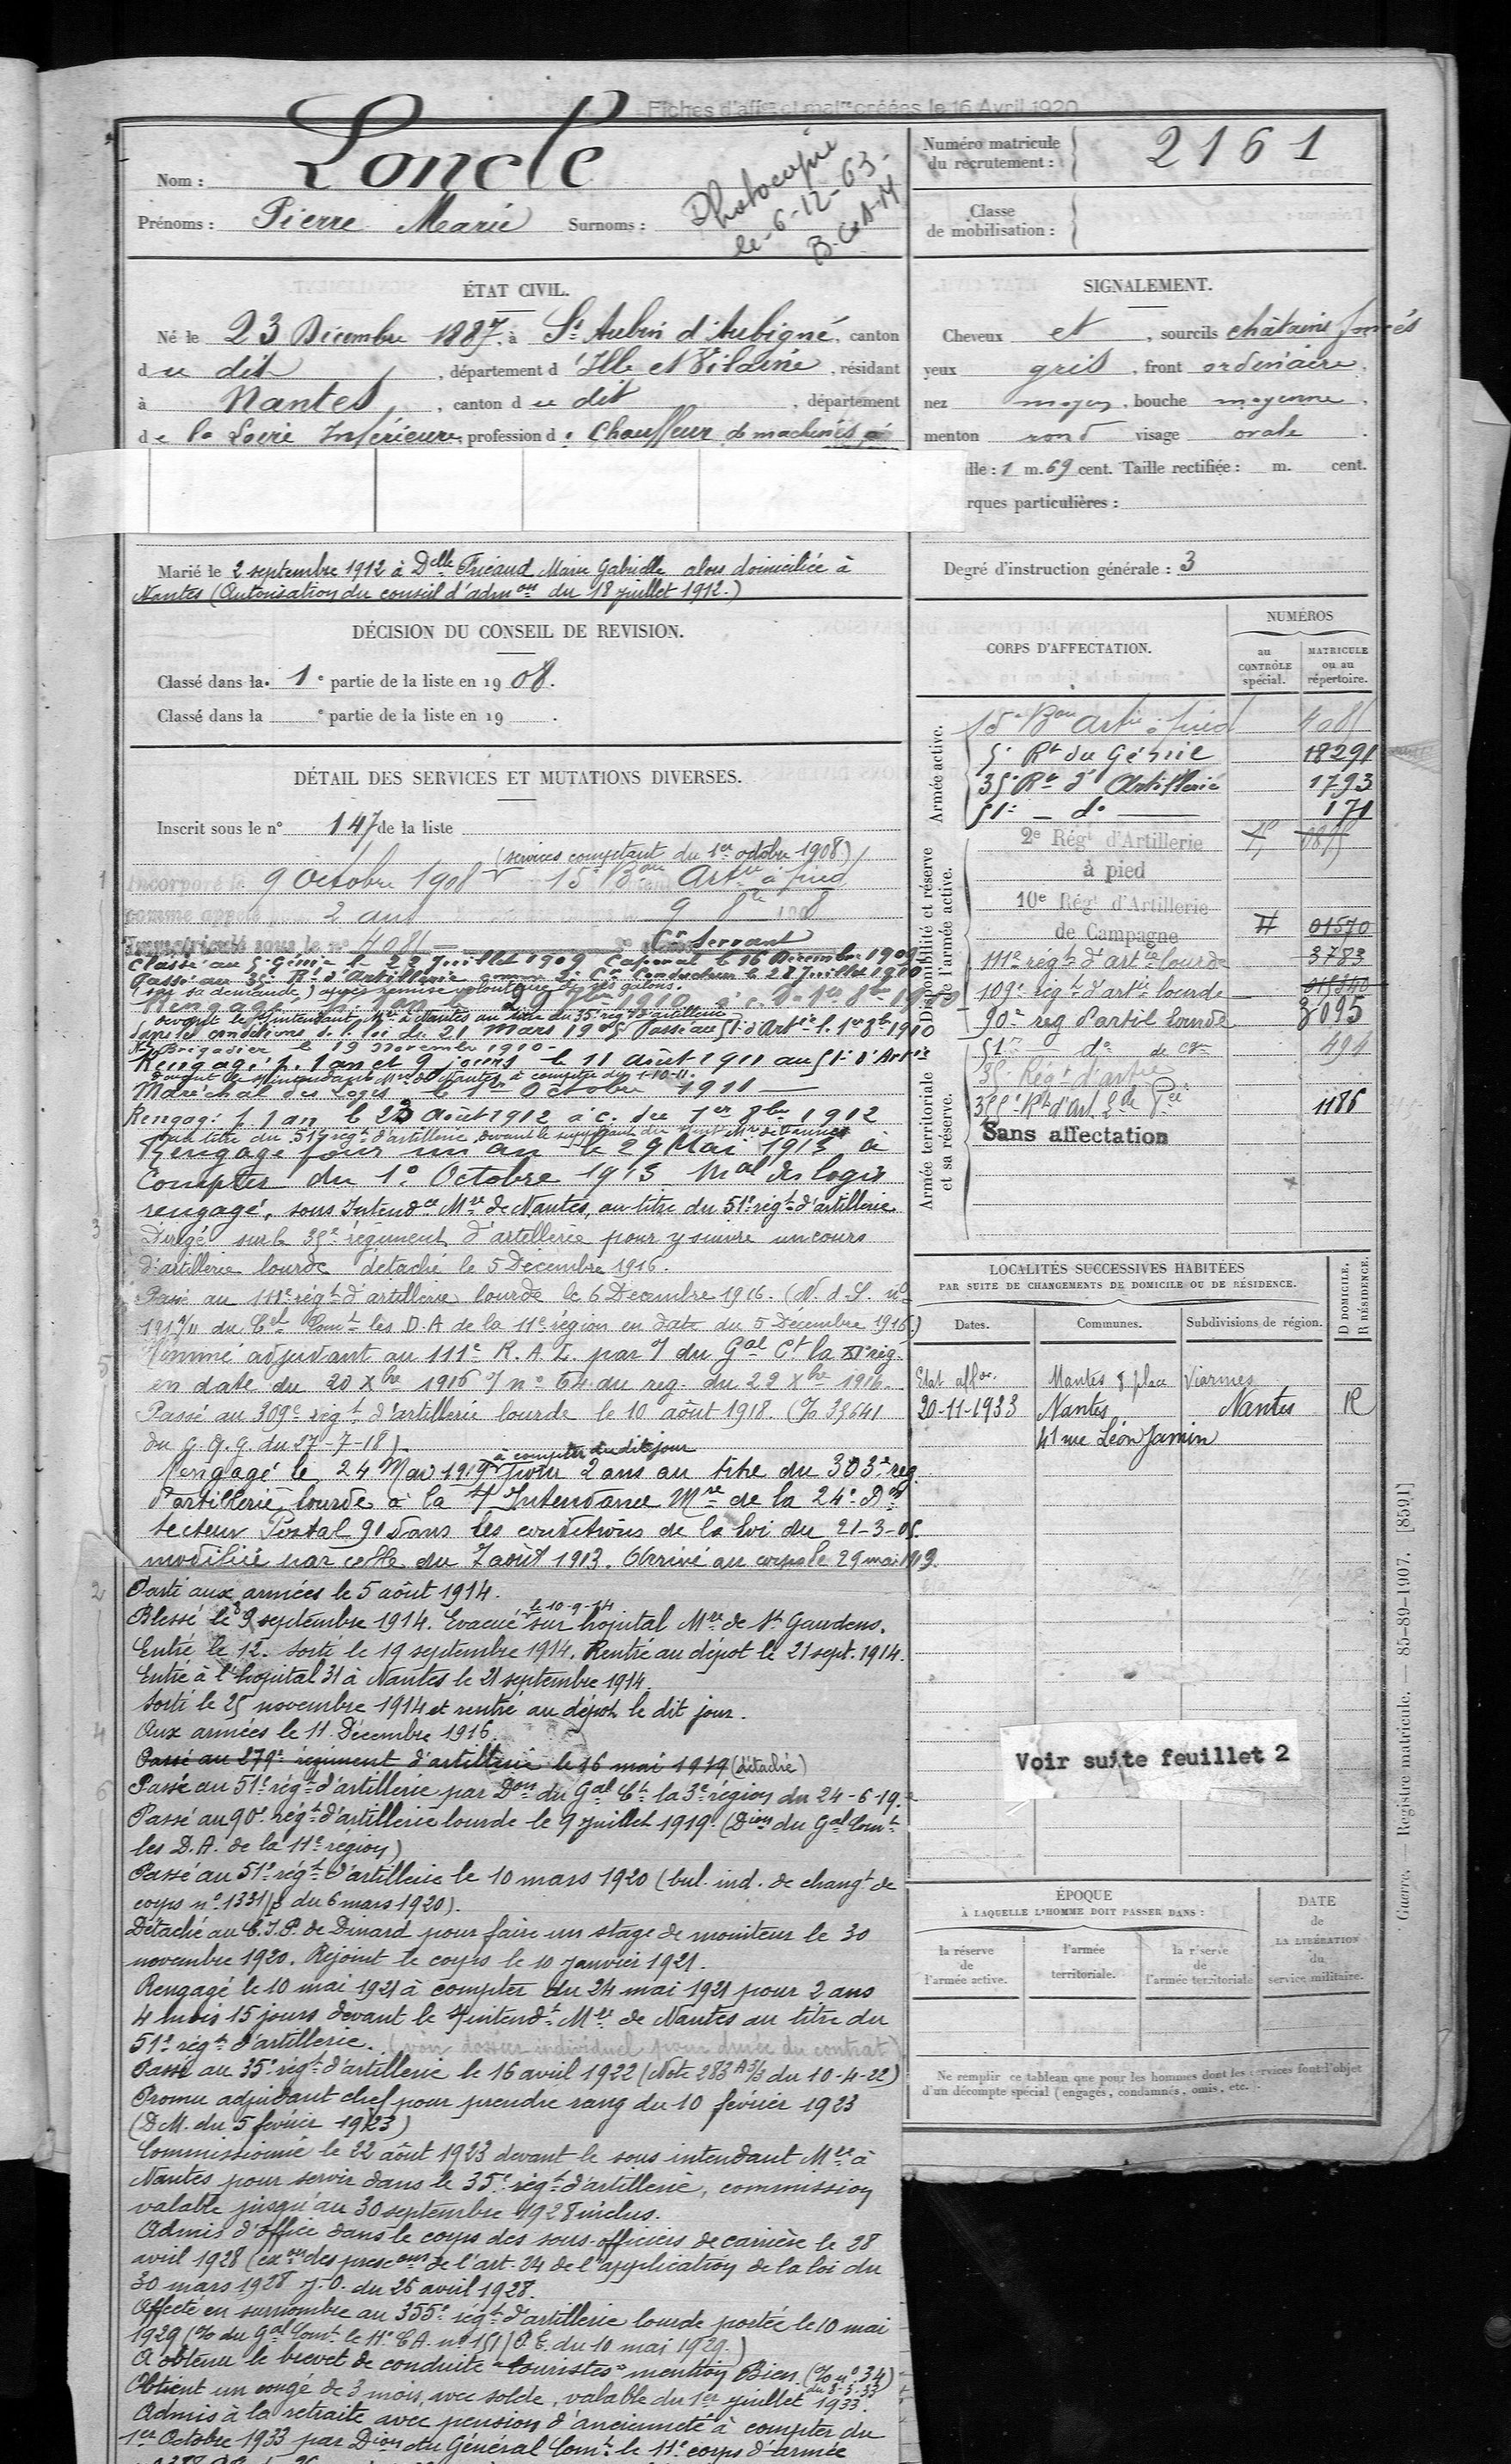 Fiches d'affon et malre créées le 16 Avril 1920
Nom : Loncle
Prénoms : Pierre Marie Surnoms :
Photocopié
le 6-12-63
Numéro matricule du recrutement : 2161
Classe de mobilisation :
ÉTAT CIVIL.
Né le 23 Décembre 1887, à St Aubin d'Aubigné, canton
du dit, département d'Ille et Vilaine, résidant
à Nantes, canton du dit, département
de la Loire Inférieure, profession de Chauffeur de machines à
Marié le 2 septembre 1912 à Delle Pricaud Marie Gabrielle alors domiciliée à
Nantes (Autorisation du conseil d'admon du 18 juillet 1912.)
DÉCISION DU CONSEIL DE REVISION.
Classé dans la 1e partie de la liste en 1908.
Classé dans la e partie de la liste en 19 .
DÉTAIL DES SERVICES ET MUTATIONS DIVERSES.
Inscrit sous le n° 147 de la liste
(services comptant du 1er octobre 1908)
Incorporé 9 Octobre 1908 15e Bon Artie à pied
comme appelé 2 ans 9 8bre 1908
Immatriculé sous le n° 4081 Cr Servant
Classé au 5e Génie le 22 Juillet 1909 Caporal le 16 Décembre 1909
Passé au 35e Rt d'Artillerie comme 2e Cr Conducteur le 27 Juillet 1910
(sur sa demande) après remise volontaire de ses galons.
devant le s/Intendant Mre à Nantes au titre du 35e régt d'artillerie
dans les conditions de la loi de 21 Mars 1905 Passé au 51e d'Artie le 1er 8bre 1910
Brigadier le 19 novembre 1910
Rengagé p. 1 an et 9 jours le 11 août 1911 au 51e d'Artie
devant le s/Intendant Mre de Nantes à compter du 1-10-11
Maréchal des Logis le 1er Octobre 1911
Rengagé p. 1 an le 23 Août 1912 à c. du 1er 8bre 1912
au titre du 51e régt d'artillerie devant le suppléant du s/Int Mre de Vannes
Rengagé pour un an le 29 Mai 1913 à
Compter du 1er Octobre 1913 Mal des logis
rengagé, sous Intendce Mre de Nantes, au titre du 51e régt d'artillerie
Dirigé sur le 35e régiment d'artillerie pour y suivre un cours
d'artillerie lourde détaché le 5 Décembre 1916.
Passé au 111e régt d'artillerie lourde le 6 Décembre 1916. (N. d. S. n°
191 /11 du Cel Comt les D.A de la 11e région en date du 5 Décembre 1916.)
Nommé adjudant au 111e R.A.L. par % du Gal Ct la XIe rég.
en date du 20 Xbre 1916 % n° 64 du rég. du 22 Xbre 1916.
Passé au 309e régt d'artillerie lourde le 10 août 1918. (% 35641
du G.Q.G. du 27-7-18)
à compter du dit jour
Rengagé le 24 Mai 1919 pour 2 ans au titre du 303e rég.
d'artillerie lourde à la s/Intendance Mre de la 24e Don
secteur Postal 91 dans les conditions de la loi du 21-3-05
modifiée par celle du 7 août 1913. Arrivé au corps le 29 mai 1919.
Parti aux armées le 5 août 1914.
Blessé le 9 septembre 1914. Evacué le 10-9-14 sur hôpital Mre de St Gaudens.
Entré le 12. Sorti le 19 septembre 1914. Rentré au dépôt le 21 sept. 1914.
Entré à l'hôpital 31 à Nantes le 21 septembre 1914.
Sorti le 25 novembre 1914 et rentré au dépôt le dit jour.
Aux armées le 11 Décembre 1916.
Passé au 279e régiment d'artillerie le 16 mai 1919 (détaché)
Passé au 51e régt d'artillerie par Don du Gal Ct la 3e région du 24-6-19.
Passé au 90e régt d'artillerie lourde le 9 juillet 1919. (Dion du Gal Comt
les D.A. de la 11e région)
Passé au 51e régt d'artillerie le 10 mars 1920 (bul. ind. de changt de
corps n° 1331/ du 6 mars 1920).
Détaché au C.I.P. de Dinard pour faire un stage de moniteur le 30
novembre 1920. Rejoint le corps le 10 janvier 1921.
Rengagé le 10 mai 1921 à compter du 24 mai 1921 pour 2 ans
4 mois 15 jours devant le s/intendt Mre de Nantes au titre du
51e régt d'artillerie. (voir dossier individuel pour durée du contrat)
Passé au 35e régt d'artillerie le 16 avril 1922 (Note 283 A 3/3 du 10-4-22)
Promu adjudant chef pour prendre rang du 10 février 1923
(D.M. du 5 février 1923)
Commissionné le 22 août 1923 devant le sous intendant Mre à
Nantes pour servir dans le 35e régt d'artillerie, commission
valable jusqu'au 30 septembre 1928 inclus.
Admis d'office dans le corps des sous-officiers de carrière le 28
avril 1928 (exon des prescons de l'art. 24 de l'application de la loi du
30 mars 1928 J.O. du 25 avril 1928.
Affecté en surnombre au 355e régt d'artillerie lourde portée le 10 mai
1929 (% du Gal Comt le 11e C.A. n° 151/O.E. du 10 mai 1929.)
A obtenu le brevet de conduite "touristes" mention Bien. (% n° 34 du 8-5-33)
Obtient un congé de 3 mois, avec solde, valable du 1er juillet 1933.
Admis à la retraite avec pension d'ancienneté à compter du
1er Octobre 1933 par Dion du Général Comt le 11e corps d'armée
SIGNALEMENT.
Cheveux et, sourcils châtains foncés
yeux gris, front ordinaire,
nez moyen, bouche moyenne,
menton rond visage ovale.
ille : 1 m. 69 cent. Taille rectifiée : m. cent.
rques particulières :
Degré d'instruction générale : 3
CORPS D'AFFECTATION.
NUMÉROS
au CONTRÔLE spécial.
MATRICULE ou au répertoire.
Armée active.
15e Bon Artie à pied 4081
5e Rt du Génie 18291
35e Rt d'Artillerie 1793
51e — do — 171
Disponibilité et réserve de l'armée active.
2e Régt d'Artillerie à pied
10e Régt d'Artillerie de Campagne 01570
111e régt d'artie lourde 3783
109e régt d'artie lourde
90e reg d'artil Lourde 3095
Armée territoriale et sa réserve.
51e — do — 494
35e Régt d'artie
355e Rt d'Art. Lde Pée 1186
Sans affectation
LOCALITÉS SUCCESSIVES HABITÉES
PAR SUITE DE CHANGEMENTS DE DOMICILE OU DE RÉSIDENCE.
Dates. Communes. Subdivisions de région. D DOMICILE. R RÉSIDENCE.
Etat affon. Nantes 8 place Viarmes
20-11-1933 Nantes Nantes R
41 rue Léon Jamin
Voir suite feuillet 2
ÉPOQUE
À LAQUELLE L'HOMME DOIT PASSER DANS :
la réserve de l'armée active.
l'armée territoriale.
la réserve de l'armée territoriale
DATE de LA LIBÉRATION du service militaire.
Ne remplir ce tableau que pour les hommes dont les services font l'objet
d'un décompte spécial (engagés, condamnés, omis, etc.).
Guerre. — Registre matricule. — 85-89-1907. [8591]